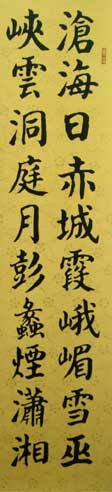 滄海日赤城霞峨嵋雪巫
峽雲洞庭月彭蠡煙瀟湘